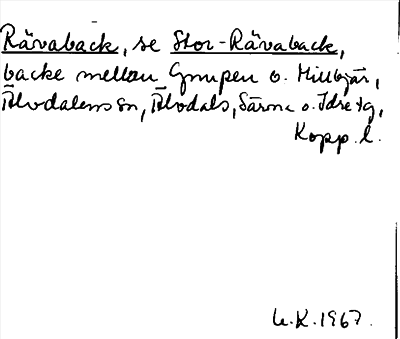 Rävaback, se Stor-Rävaback,
backe mellan Gnupen o. Hillbjär,
Älvdalens sn, Älvdals, Särna o. Idre tg,
Kopp. l.
U.K. 1967.